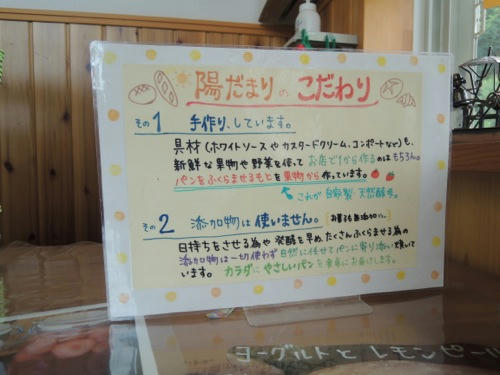 陽だまりのこだわり
その1 手作りしています。
具材(ホワイトソースやカスタードクリーム、コンポートなど)も、
新鮮な果物や野菜を使ってお店で1から作るのはもちろん。
パンをふくらませるもとを果物から作っています。
これが自家製天然酵母。
その2 添加物は使いません。
日持ちをさせる為や発酵を早め、たくさんふくらませる為の
添加物は一切使わず自然に任せてパンに寄り添い焼いて
います。カラダにやさしいパンを食卓にお届けします。
ヨーグルトとレモンピール